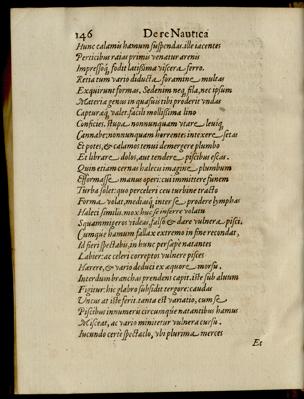 146 De re Nautica
Hunc calamis hamum suspendas. ille iacentes
Perticibus ratas primùm venatur arenis
Impressoq; fodit latissima viscera ferro.
Retia tum vario diducta foramine multas
Exquirunt formas. Sed enim neq; fila, nec ipsum
Materiæ genus in quasuis tibi proderit vndas
Capturæq; valet. facili mollissima lino
Conficies. stupa nonnunquam vtare, leuiq;
Cannabe: nonnunquam horrentes intexere setas
Et potes, & calamos tenui demergere plumbo
Et librare dolos, aut tendere piscibus escas.
Quin etiam certas halecis imagine plumbum
Efformasse manus operæ: cui immittere finem
Turba solet: quo perceleri ceu turbine tracto
Forma volat, mediasq; inter se prodere lymphas
Haleci similis. mox huc se inferre volatu
Squammigeros videas, falso & dare vulnera pisci,
Cumque hamum fallax extremo in fine recondat,
Id fieri spectabis, in hunc persæpe natantes
Labier: ac celeri correptos vulnere pisces
Hærere, & vario deduci ex æquore morsu.
Interdum branchas prendens capit. iste sub aluum
Figitur: hic glabro subsidit tergore: caudas
Vncus at iste ferit. tanta est variatio, cum se
Piscibus innumeris circumque natantibus hamus
Misceat, ac vario minitetur vulnera cursu.
Iucundo certè spectaclo, vbi plurima merces
Et